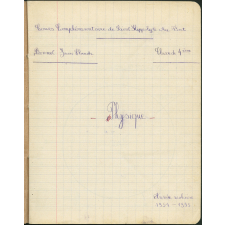 Cours Complémentaire de Saint Hippolyte du Fort
Jean Claude
Classe de 4ème
- Physique -
Année scolaire